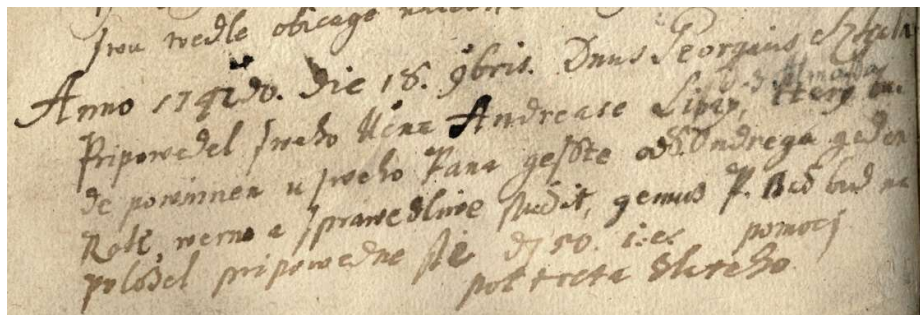 swu wedle obicage
Anno 1742do. Die 18. 9bris. Dnus Georgius
Pripowedel sweho Ucna Andrease Lipey, ktery bu-
de powinnen u sweho Pana gesste od S. Ondrega geden
Rok, werne a sprawedliwe sluzit, gemus P. Buh bud na
pomocj
polozel pripowedne sie d 50. i.e.
pol treta zlateho